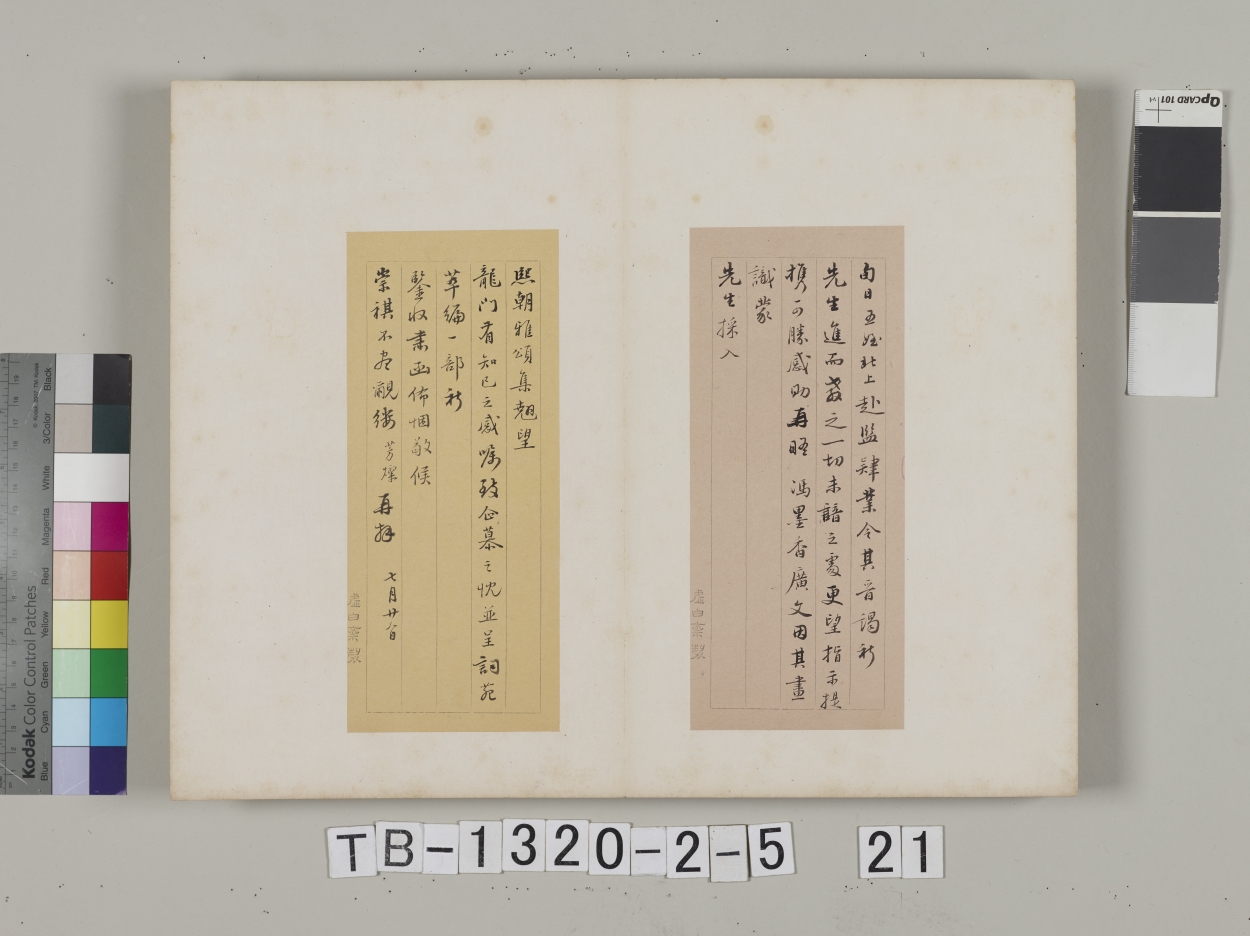 先生進而教之一切未諳之處更望指示提
携可勝感助再晤馮墨香廣文因其畫
識蒙
先生採入
熙朝雅頌集翹望
龍門有知己之感囑致企慕之忱並呈詞苑
萃編一部祈
鑒收肅函佈悃敬候
崇祺不盡覼縷芳燦再拜 七月廿
虛白齋製
虛白齋製
QPCARD 101
Kodak Color Control Patches
Blue Cyan Green Yellow Red Magenta White 3/Color Black
TB-1320-2-5 21